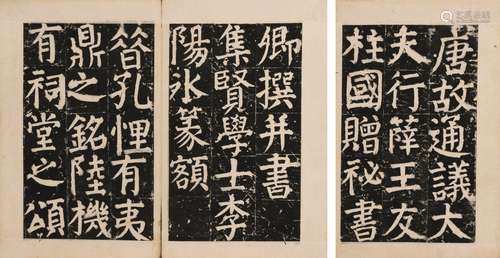 唐故通議大
夫行薛王友
柱國贈祕書
卿撰并書
集賢學士李
陽氷篆額
昔孔悝有夷
鼎之銘陸機
有祠堂之頌